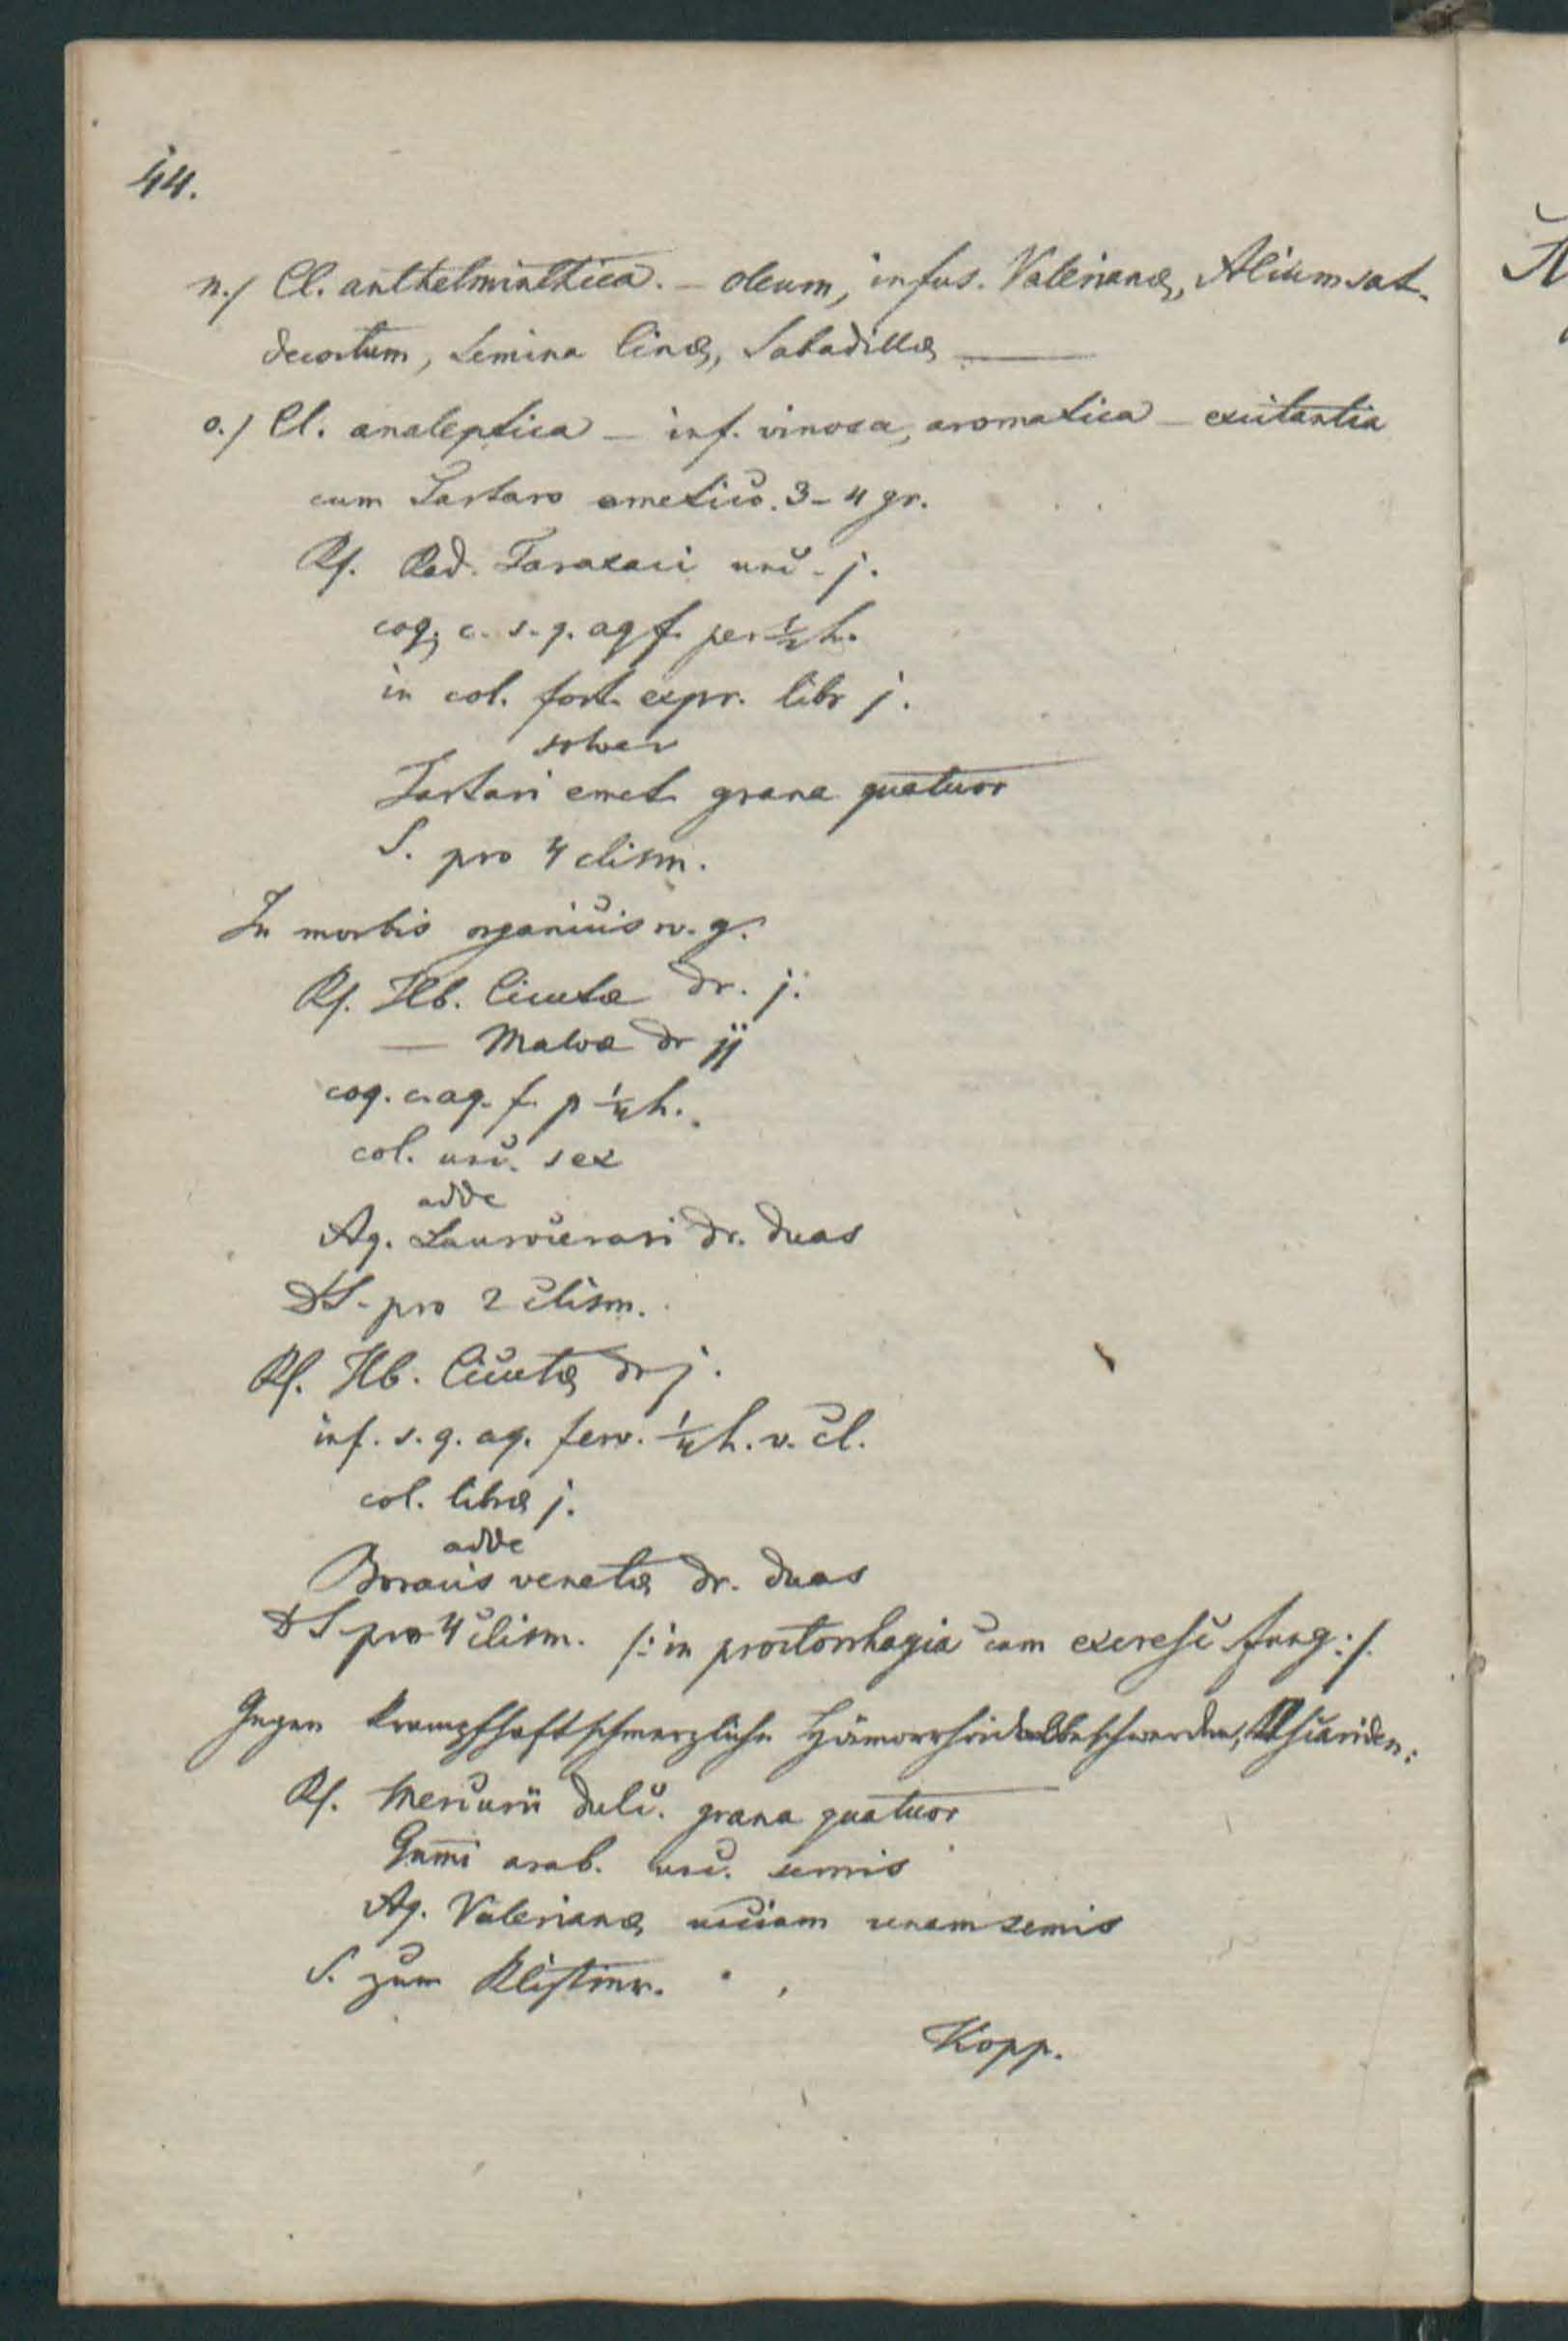 44.
n./ Cl. anthelminthica. – oleum, infus. Valerianæ, Alium sat.
decoctum, Semina Cinæ, Sabadillæ —
o./ Cl. analeptica – inf. vinosa, aromatica – excitantia
cum Tartaro emetico. 3–4 gr.
Rp. Rad. Taraxaci unc. j.
coq. c. s. q. aq f. per ½ h.
in col. fort. expr. libr j.
solve
Tartari emet. grana quatuor
S. pro 4 clism.
In morbis organicis v. g.
Rp. Hb. Cicutæ dr. j.
— Malvæ dr jj
coq. c. aq. f. p ¼ h.
col. unc. sex
adde
Aq. Laurocerasi dr. duas
DS. pro 2 clism.
Rp. Hb. Cicutæ dr j.
inf. s. q. aq. ferv. ¼ h. v. cl.
col. libræ j.
adde
Boracis venetæ dr. duas
DS pro 4 clism. /: in proctorrhagia cum exeresc fung :/.
Gegen krampfhaft schmerzliche Hämorrhoidalbeschwerden,
Rp. Mercurii dulc. grana quatuor
Gum̅i arab. unc. semis
Aq. Valerianæ unciam unam semis
S. zum Klistier.
Kopp.